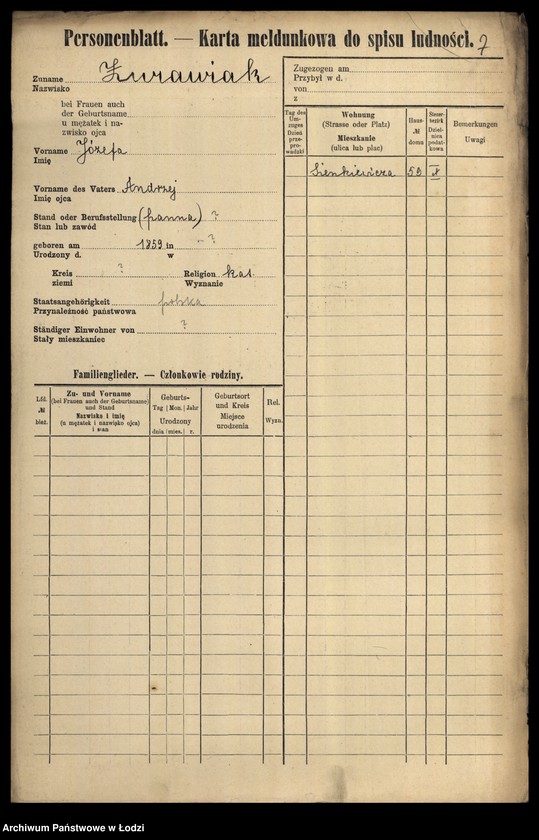 Personenblatt. — Karta meldunkowa do spisu ludności. 7
Zuname Żurawiak
Nazwisko
bei Frauen auch
der Geburtsname
u mężatek i na-
zwisko ojca
Vorname Józefa
Imię
Vorname des Vaters Andrzej
Imię ojca
Stand oder Berufsstellung (panna) ?
Stan lub zawód
geboren am 1859 in - ?
Urodzony d. w
Kreis ? Religion kat.
ziemi Wyznanie
Staatsangehörigkeit polska
Przynależność państwowa
Ständiger Einwohner von ?
Stały mieszkaniec
Familienglieder. — Członkowie rodziny.
Lfd.
№
bież.
Zu- und Vorname
(bei Frauen auch der Geburtsname)
und Stand
Nazwisko i imię
(u mężatek i nazwisko ojca)
i stan
Geburts-
Tag Mon. Jahr
Urodzony
dnia mies. r.
Geburtsort
und Kreis
Miejsce
urodzenia
Rel.
Wyzn.
Zugezogen am
Przybył w d.
von
z
Tag des
Um-
zuges
Dzień
prze-
pro-
wadzki
Wohnung
(Strasse oder Platz)
Mieszkanie
(ulica lub plac)
Haus-
№
domu
Steuer-
bezirk
Dziel-
nica
podat-
kowa
Bemerkungen
Uwagi
Sienkiewicza 59 X
Archiwum Państwowe w Łodzi